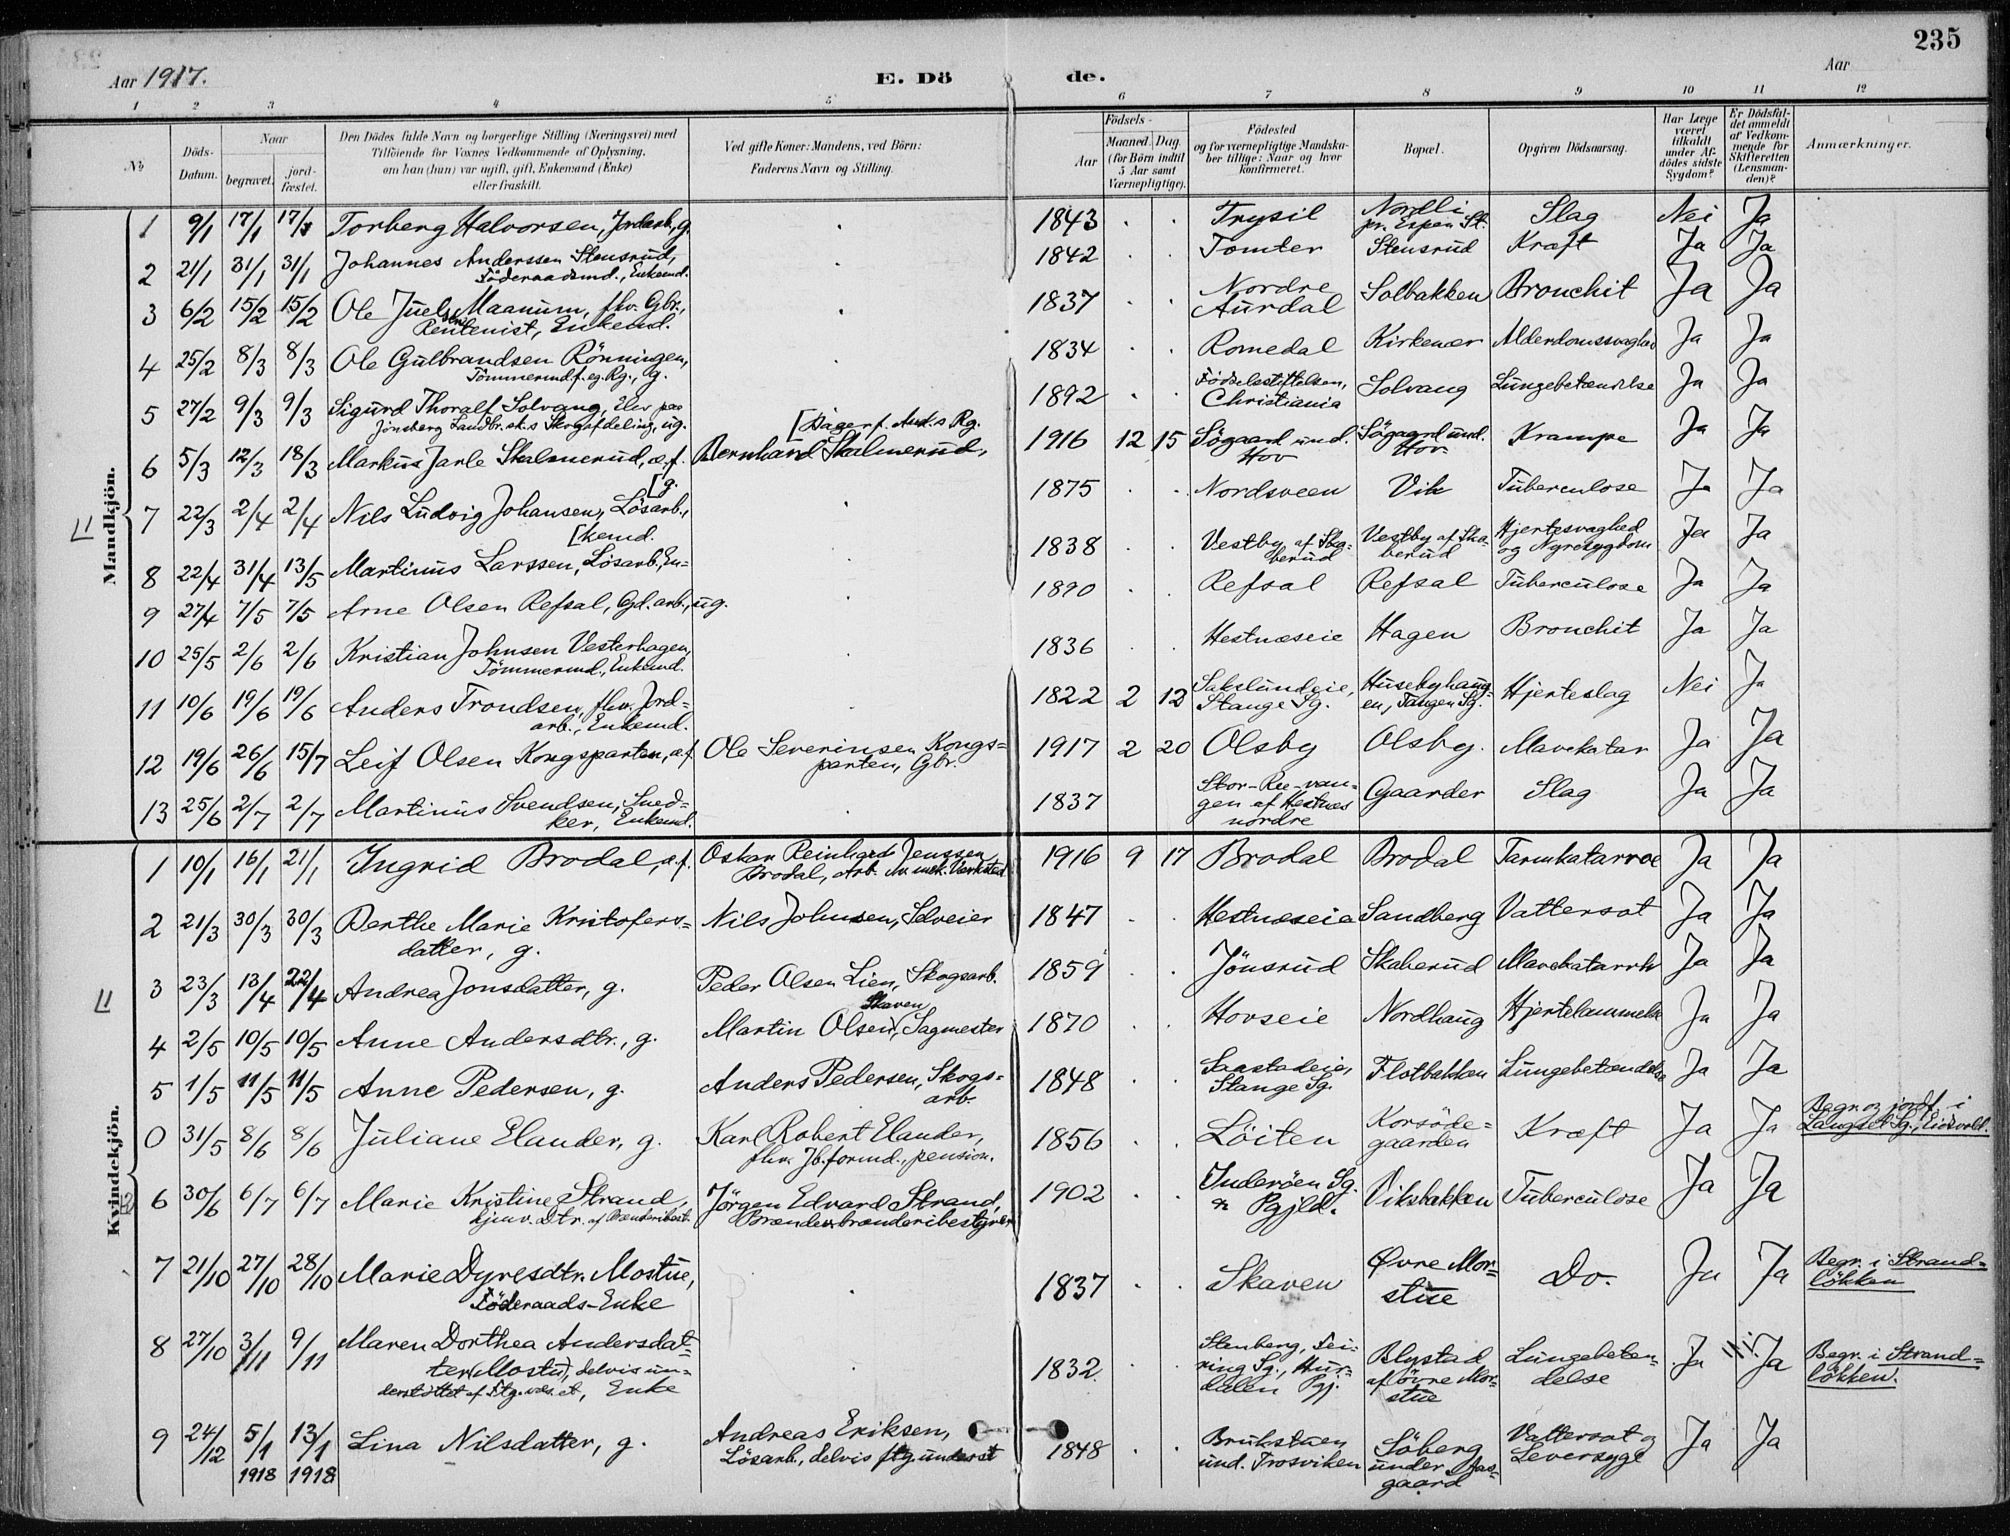 235
Aar 1917. E. Dö de. Aar
1 2 3 4 5 6 7 8 9 10 11 12
No
Döds-Datum.
Naar
begravet.
jord-fæstet.
Den Dödes fulde Navn og borgerlige Stilling (Næringsvei) med
Tilföiende for Voxnes Vedkommende af Oplysning,
om han (hun) var ugift, gift, Enkemand (Enke)
eller fraskilt.
Ved gifte Koner: Mandens, ved Börn:
Faderens Navn og Stilling.
Födsels-
Aar
Maaned. Dag.
(for Börn indtil
5 Aar samt
Værnepligtige).
Födested
og for værnepligtige Mandska-
ber tillige: Naar og hvor
konfirmeret.
Bopæl.
Opgiven Dödsaarsag.
Har Læge
været
tilkaldt
under Af-
dödes sidste
Sygdom?
Er Dödsfal-
det anmeldt
af Vedkom-
mende for
Skifteretten
(Lensman-
den)?
Anmærkninger.
Mandkjön.
1 9/1 17/1 17/1 Torberg Halvorsen, Jordarb., g. 1843 Trysil Nordli pr. Espen St. Slag Nei Ja
2 21/1 31/1 31/1 Johannes Anderssen Stensrud, Föderaadsmd., Enkemd. 1842 Tomter Stensrud Kræft Ja Ja
3 6/2 15/2 15/2 Ole Juelsen Maanum, fhv. Gbr., Rentenist, Enkemd. 1837 Nordre Aurdal Solbakken Bronchit Ja Ja
4 25/2 8/3 8/3 Ole Gulbrandsen Rönningen, Tömmermd f. eg. Rg., g. 1834 Romedal Kirkenær Alderdomssvaghed Ja Ja
5 27/2 9/3 9/3 Sigurd Thoralf Solvang, Elev paa Jönsberg Landbr.sk.s Skogafdeling, ug. 1892 Födselsstiftelsen, Christiania Solvang Lungebetændelse Ja Ja
6 5/3 12/3 18/3 Markus Jarle Skalmerud, æ.f. Bernhard Skalmerud, [Bager f. And.s Rg. 1916 12 15 Sögaard und. Hov Sögaard und. Hov Krampe Ja Ja
7 22/3 2/4 2/4 Nils Ludvig Johansen, Lösarb., [g. 1875 Nordsveen Vik Tuberculose Ja Ja
8 22/4 31/4 13/5 Martinus Larssen, Lösarb., En= [kemd. 1838 Vestby af Skaberud Vestby af Ska-berud Hjertesvaghed og Nyresygdom Ja Ja
9 27/4 7/5 7/5 Arne Olsen Refsal, Gd.arb., ug. 1890 Refsal Refsal Tuberculose Ja Ja
10 25/5 2/6 2/6 Kristian Johnsen Vesterhagen, Tömmermd., Enkemd. 1836 Hestnæseie Hagen Bronchit Ja Ja
11 10/6 19/6 19/6 Anders Trondsen, fhv. Jord=arb., Enkemd. 1822 2 12 Sakslundeie, Stange Sg. Husebyhaug-en, Tangen Sg. Hjerteslag Nei Ja
12 19/6 26/6 15/7 Leif Olsen Kongsparten, æ.f. Ole Severinsen Kongs=parten, Gbr. 1917 2 20 Olsby Olsby. Mavekatar Ja Ja
13 25/6 2/7 2/7 Martinus Svendsen, Sned=ker, Enkemd. 1837 Stor-Ree-van=gen af Hestnes nordre Gaarder Slag Ja Ja
Kvindekjön.
1 10/1 16/1 21/1 Ingrid Brodal, æ.f. Oskar Reinhard Jenssen Brodal, Arb. v. mek. Verksted 1916 9 17 Brodal Brodal Tarmkatarrhe Ja Ja
2 21/3 30/3 30/3 Berthe Marie Kristofers=datter, g. Nils Johnsen, Selveier 1847 Hestnæseie Sandberg Vattersot Ja Ja
3 23/3 13/4 22/4 Andrea Jonsdatter, g. Peder Olsen Lien, Skogsarb. 1859 Jönsrud Skaberud Mavekatarrh Ja Ja
4 2/5 10/5 10/5 Anne Andersdtr., g. Martin Olsen Skaven, Sagmester 1870 Hovseie Nordhaug Hjertelammelse Ja Ja
5 1/5 11/5 11/5 Anne Pedersen, g. Anders Pedersen, Skogs=arb. 1848 Saastadeie, Stange Sg. Flotbakken Lungebetændelse Ja Ja
0 31/5 8/6 8/6 Juliane Elander, g. Karl Robert Elander, fhv. Jb.formd., pension. 1856 Löiten Korsöde=gaarden Kræft Ja Ja Begr. og jordf. i Langset Sg., Eidsvold.
6 30/6 6/7 6/7 Marie Kristine Strand, hjemv. Dtr. af Brænderibest. Jörgen Edvard Strand, Brændevbrænderibestyrer 1902 Inderöen Sg. & Pgjld. Viksbakken Tuberculose Ja Ja
7 21/10 27/10 28/10 Marie Dyresdtr. Mostue, Föderaads-Enke 1837 Skaven Øvre Mor=stue Do. Ja Ja Begr. i Strand=lökken
8 27/10 3/11 9/11 Maren Dorthea Andersdat=ter (Mostu), delvis un=derstöttet af Ftg.væs.et, Enke 1832 Stenberg, Fei=ring Sg., Hur=dalen Pgj. Blystad af övre Mor=stue Lungebeten=delse Ja Ja Begr. i Strand=lökken.
9 24/12 5/1 1918 13/1 1918 Lina Nilsdatter, g. Andreas Eriksen, Lösarb., delvis ftg.underst 1848 Brukstuen und. Trosviken Söberg under Aas=gaard Vattersot og Leversyge Ja Ja